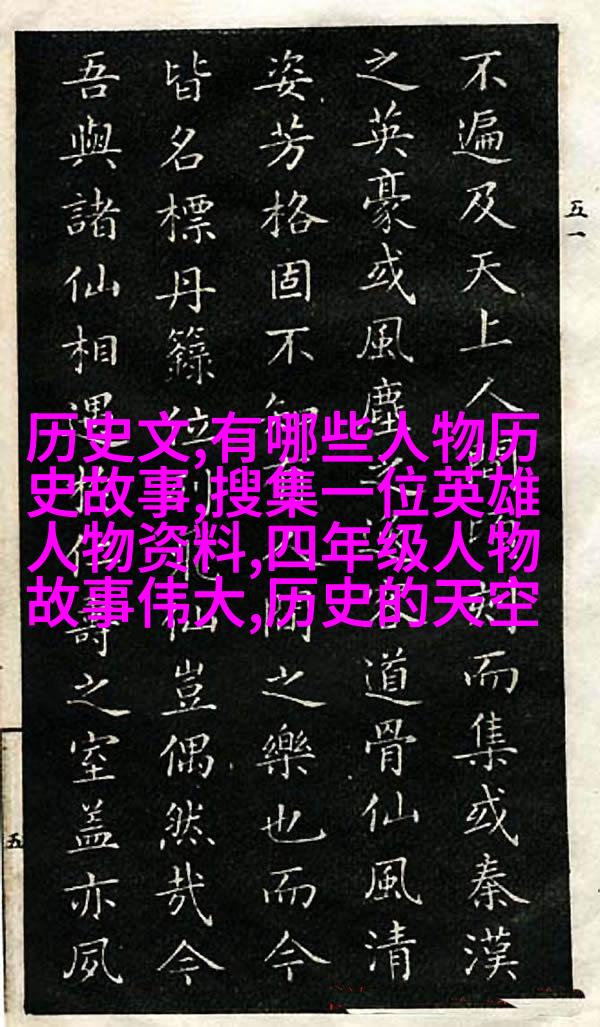 不遍及天上人間刻而集或秦漢
之英豪或風塵之客道骨仙風清
姿芳格固不知有人間之樂也而今
皆名標丹籙位列飛仙豈偶然哉今
吾與諸仙相遇於仁壽之室蓋亦夙
五一
五
历史文,有哪些人物历
史故事,搜集一位英雄
人物资料,四年级人物
故事伟大,历史的天空